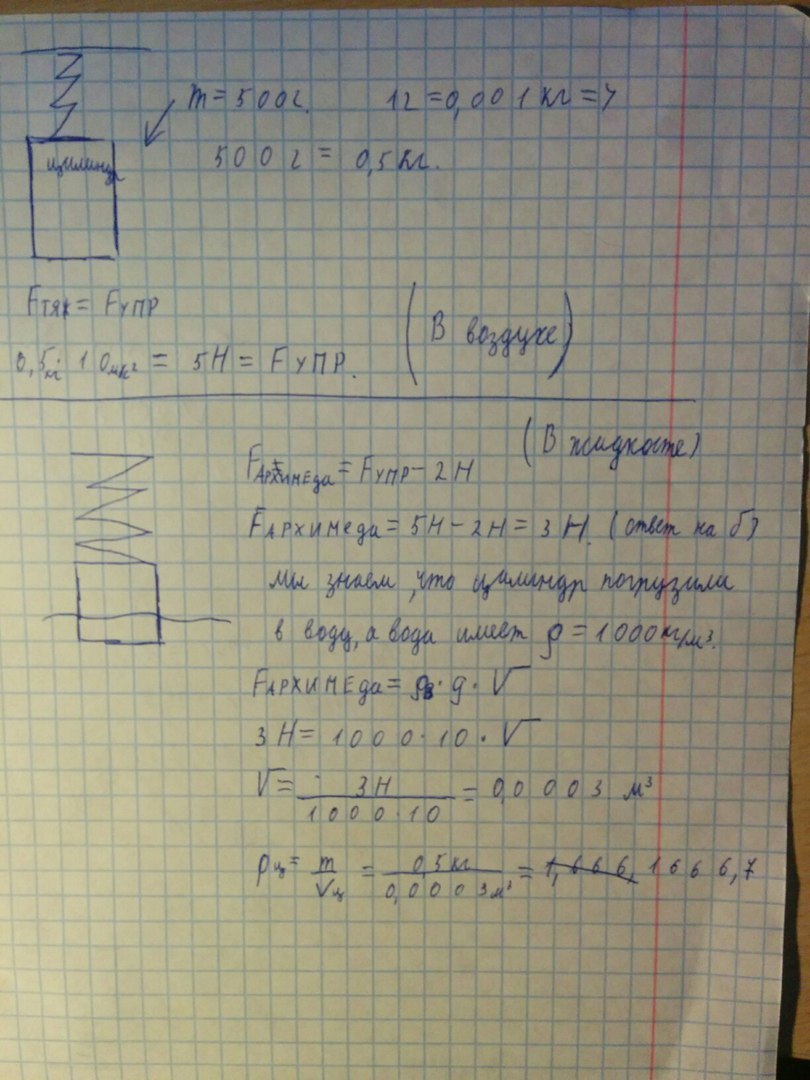 m = 500г. 1г = 0,001 кг =>
цилиндр
500 г = 0,5 кг.
Fтяж = Fупр
(В воздухе)
0,5кг · 10м/с² = 5Н = Fупр.
(В жидкосте)
FАрхимеда = Fупр - 2Н
FАрхимеда = 5Н - 2Н = 3Н. (ответ на б)
мы знаем, что цилиндр погрузили
в воду, а вода имеет ρ = 1000кг/м³.
FАрхимеда = ρв · g · V
3Н = 1000 · 10 · V
V = 3Н / 1000 · 10 = 0,0003 м³
ρц = m / Vц = 0,5кг / 0,0003м³ = 1,666, 1666,7